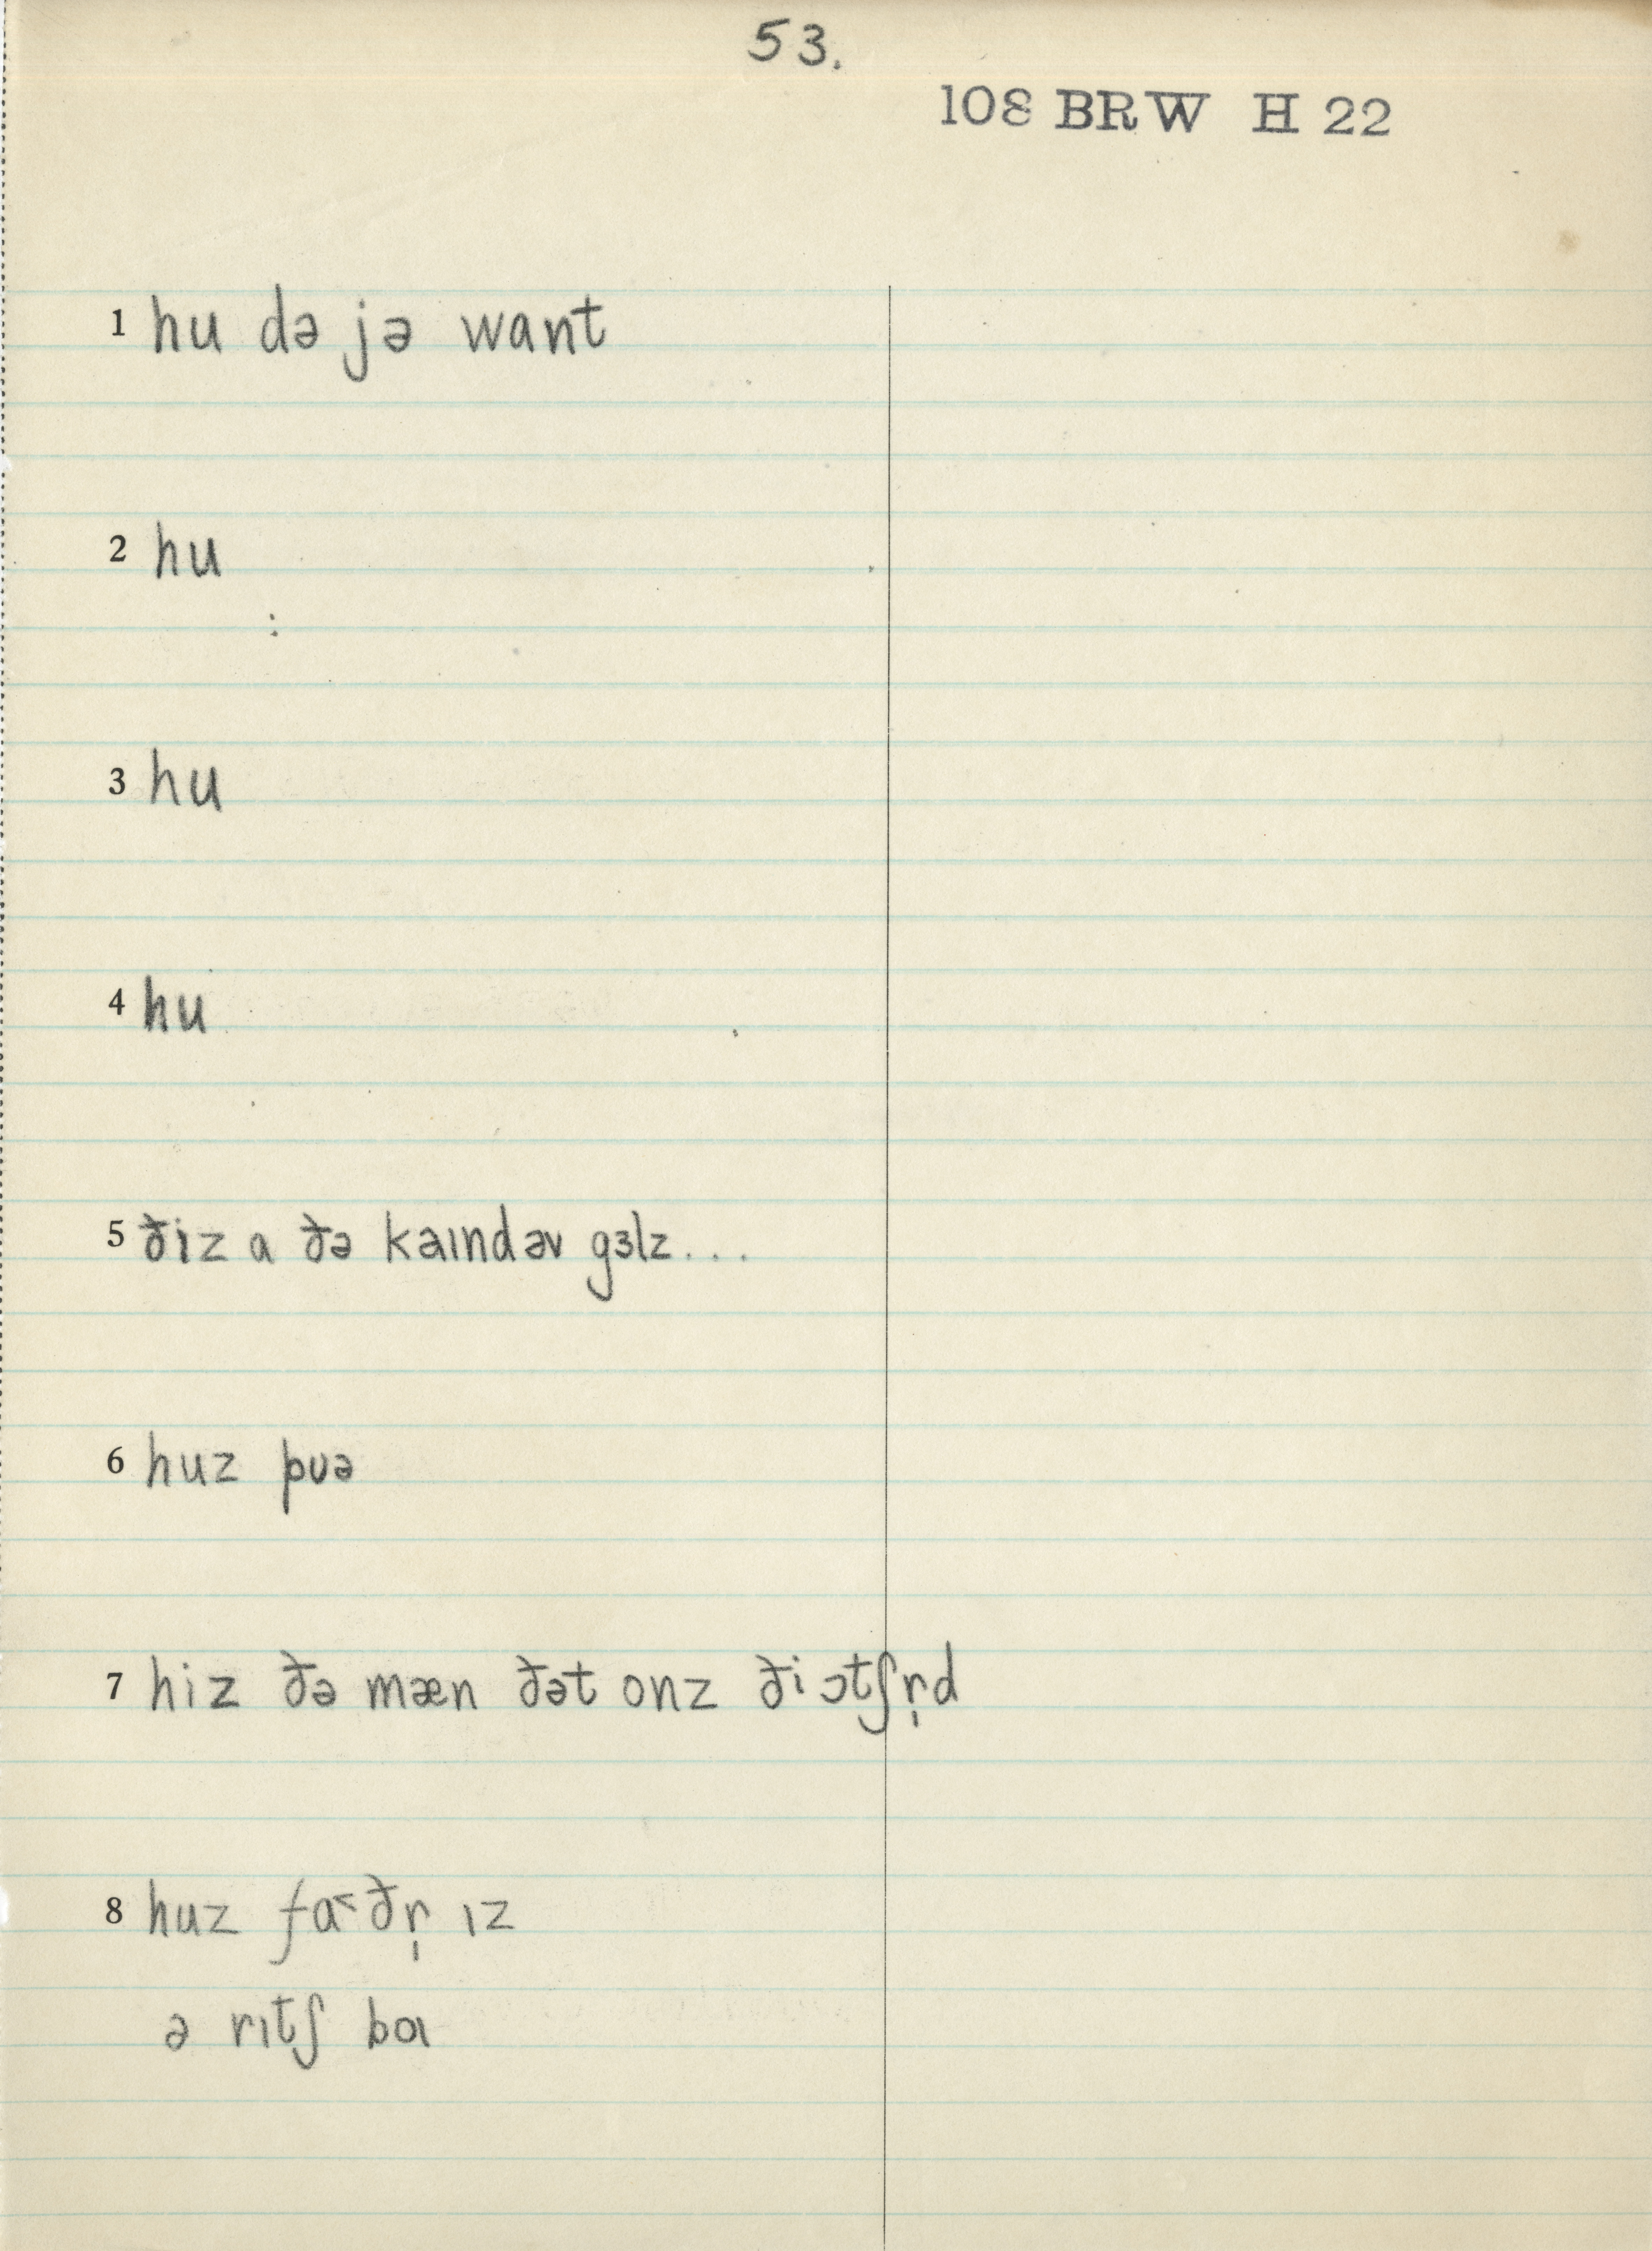 53.
108 BRW H 22
1 hu də jə want
2 hu
3 hu
4 hu
5 ðiz a ðə kaɪndəv gɜlz...
6 huz pʊə
7 hiz ðə mæn ðət onz ði ɔtʃr̩d
8 huz fa˂ðr̩ ɪz
ə rɪtʃ bɑɪ